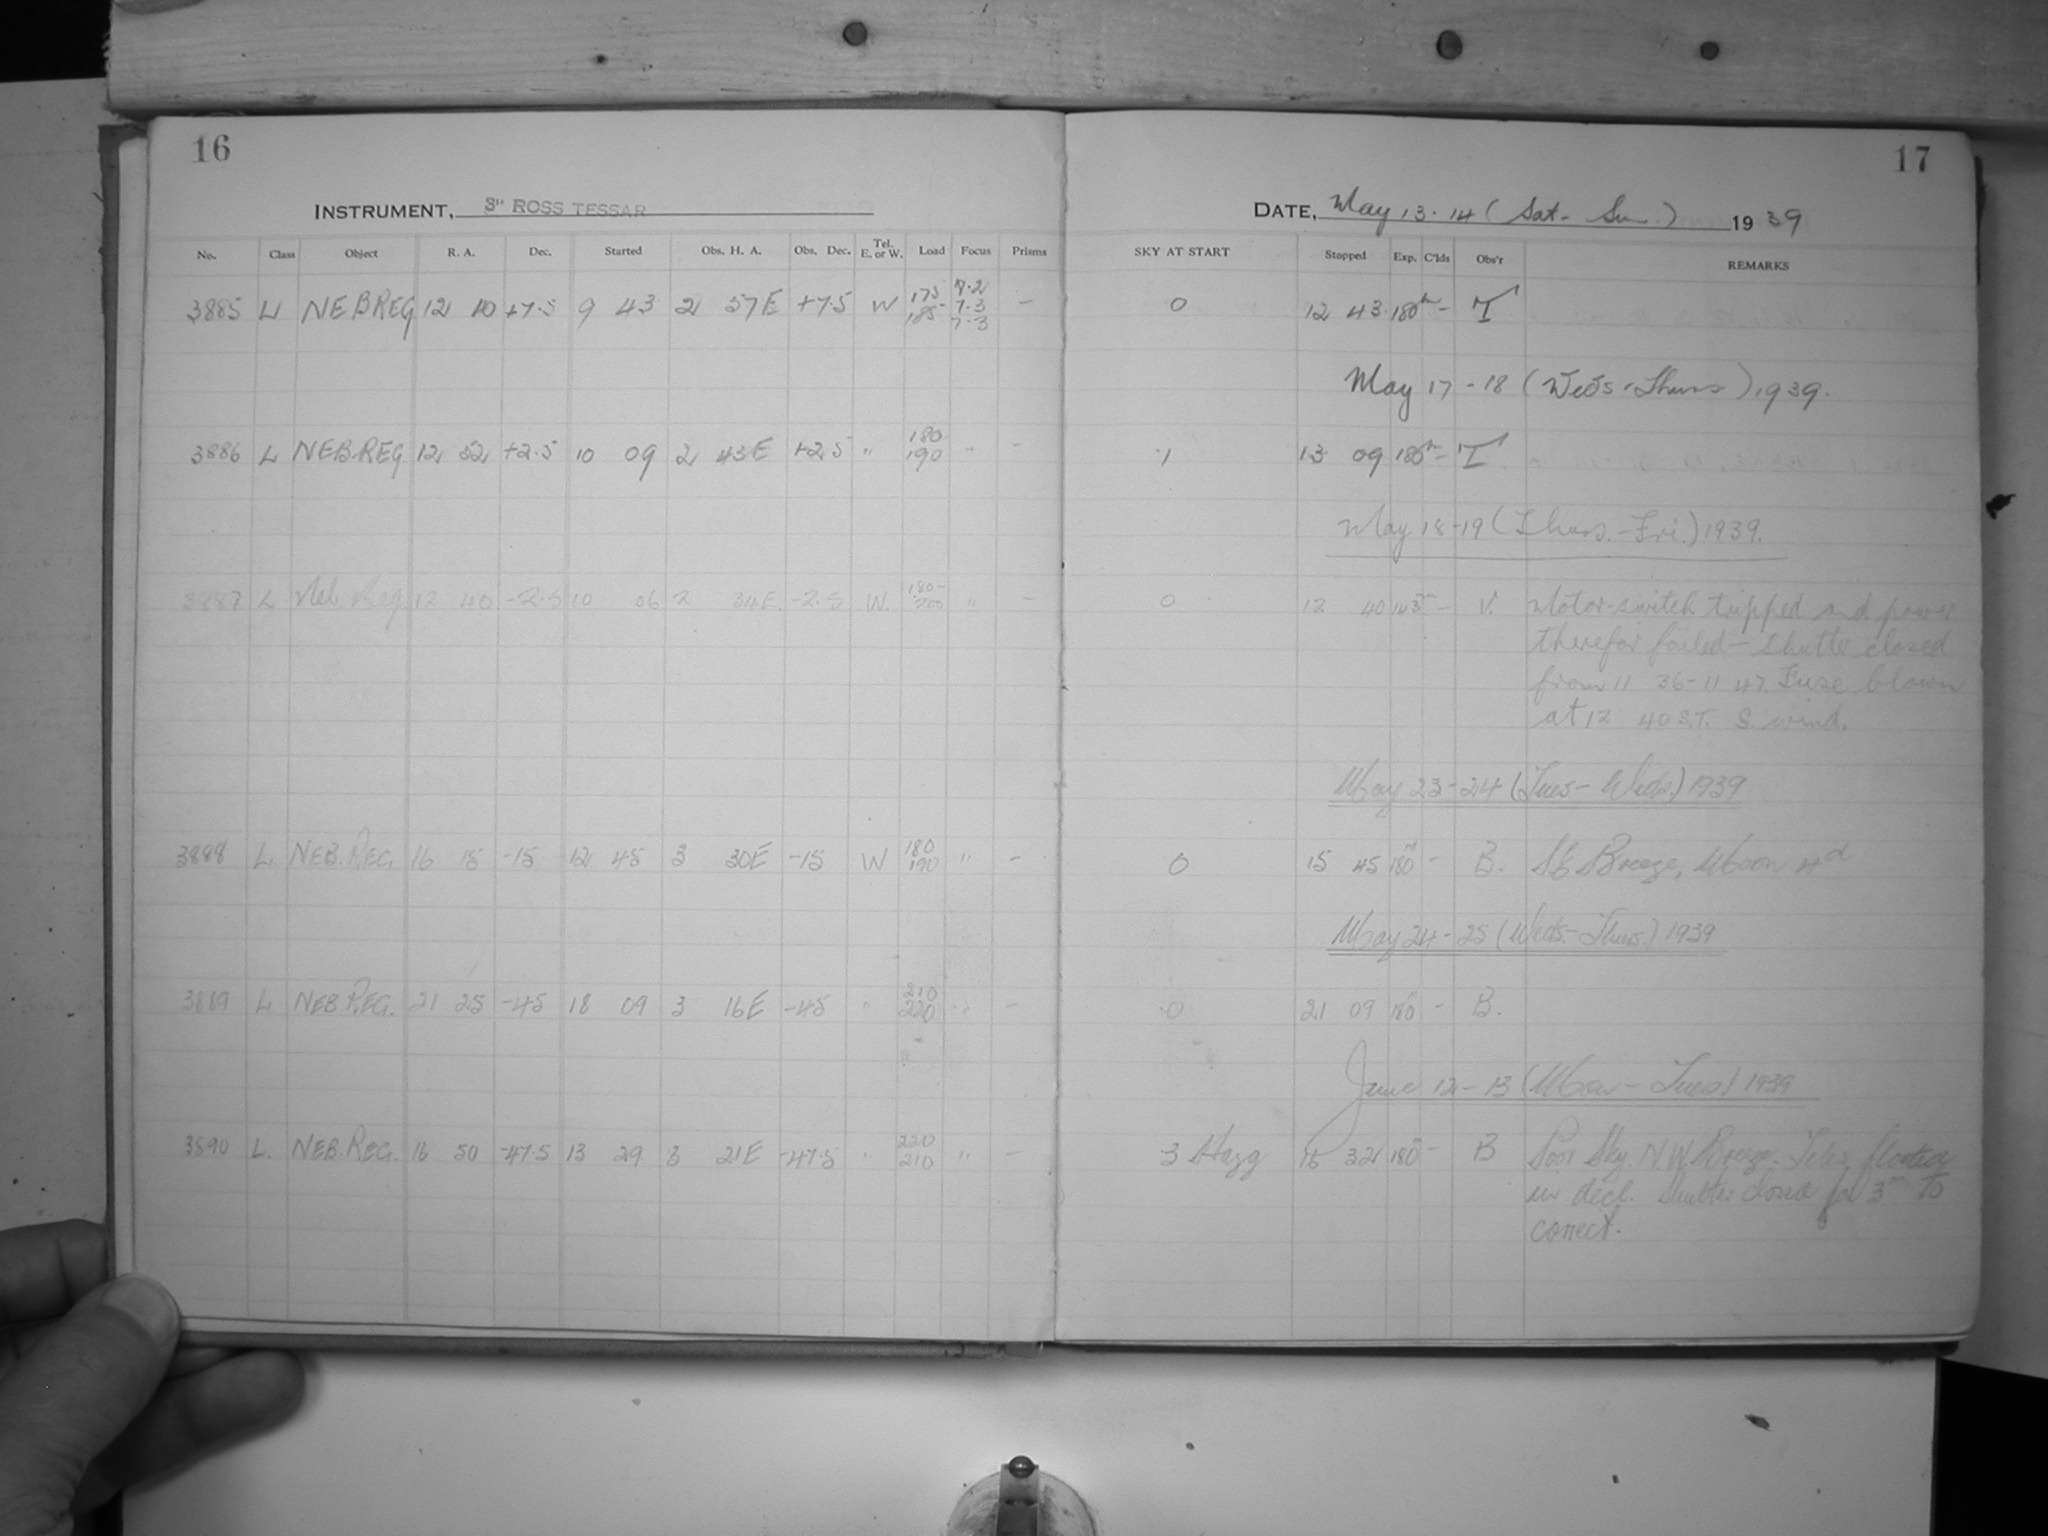 16
17
INSTRUMENT, 3" ROSS TESSAR
DATE, May 13-14 (Sat-Sun) 1939
No. Class Object R. A. Dec. Started Obs. H. A. Obs. Dec. Tel. E. or W. Load Focus Prisms SKY AT START Stopped Exp. C'lds Obs'r REMARKS
3885 L NEB REG 12 10 +7.5 9 43 2 57E +7.5 W 175 185 7.2 7.3 7.3 - 0 12 43 180m - T
May 17-18 (Weds-Thurs) 1939.
3886 L NEB.REG. 12 52 +2.5 10 09 2 43E +2.5 " 180 190 " - 1 13 09 180m - T
May 18-19 (Thurs.-Fri.) 1939.
3887 L Neb. Reg. 12 40 -2.5 10 06 2 34E -2.5 W. 180- 200 " - 0 12 40 143m - V. Motor-switch tripped and power
therefor failed - shutter closed
from 11 36-11 47. Fuse blown
at 12 40 S.T. S. wind.
May 23-24 (Tues-Weds.) 1939
3888 L. NEB.REG. 16 15 -15 12 45 3 30E -15 W 180 190 " - 0 15 45 180m - B. SE Breeze, Moon 4d
May 24-25 (Weds.-Thurs.) 1939
3889 L NEB.REG. 21 25 -45 18 09 3 16E -45 " 210 220 " - 0 21 09 180m - B.
June 12-13 (Mon-Tues) 1939
3890 L. NEB.REG. 16 50 -47.5 13 29 3 21E -47.5 " 220 210 " - 3 Hazy 16 32 180m - B Poor Sky. N.W. Breeze. Teles floated
in decl. Shutter closed for 3m to
correct.